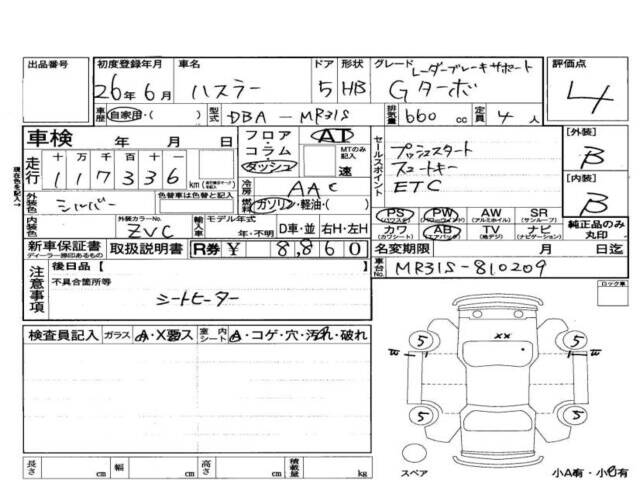 出品番号
初度登録年月 車名 ドア 形状 グレード 評価点
26年6月 ハスラー 5 HB レーダーブレーキサポート
Gターボ 4
車歴 自家用・( ) 型式 DBA-MR31S 排気量 660 cc 定員 4 人
車検 年 月 日
フロア・コラム・ダッシュ AT MTのみ記入 速
セールスポイント プッシュスタート
スマートキー
ETC
[外装] B
[内装] B
走行 十 万 千 百 十 一
117336 km
冷房 AAC
外装色 シルバー 色替車は色替と記入 燃料 ガソリン・軽油・( )
PS (パワステ) PW (パワーウィンド) AW (アルミホイル) SR (サンルーフ)
カワ (カワシート) AB (エアバック) TV (地デジ) ナビ (ナビゲーション)
純正品のみ丸印
内装色 外装カラーNo. ZVC 輸入車 モデル年式 年・不明 D車・並 右H・左H
新車保証書 ディーラー捺印あるもの 取扱説明書 R券 ¥ 8,860
名変期限 月 日迄
車台No. MR31S-810209
注意事項 後日品【 】
不具合箇所等
シートヒーター
ロック車
検査員記入 ガラス A・X要ス 室内シート A・コゲ・穴・汚れ・破れ
xx
5 5
5 5
スペア
小A有・小B有
長さ cm 幅 cm 高さ cm 積載量 kg